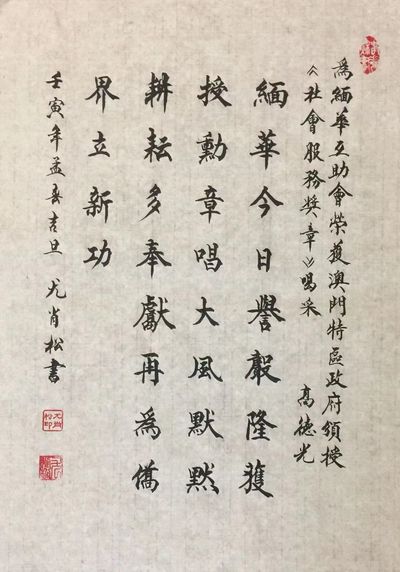 為緬華互助會榮獲澳門特區政府頒授
《社會服務奬章》喝采 高德光
緬華今日譽聲隆獲
授勳章唱大風默默
耕耘多奉獻再為僑
界立新功
壬寅年孟春吉旦 尤肖松書